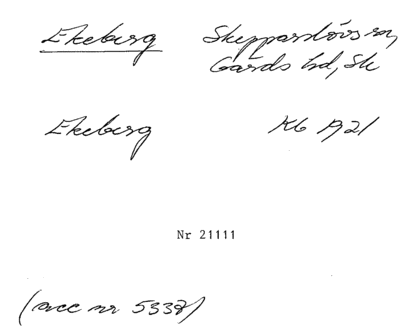 Ekeberg Skepparslövs sn,
Gärds hd, Sk
Ekeberg Kb 1921
Nr 21111
(acc nr 5338)